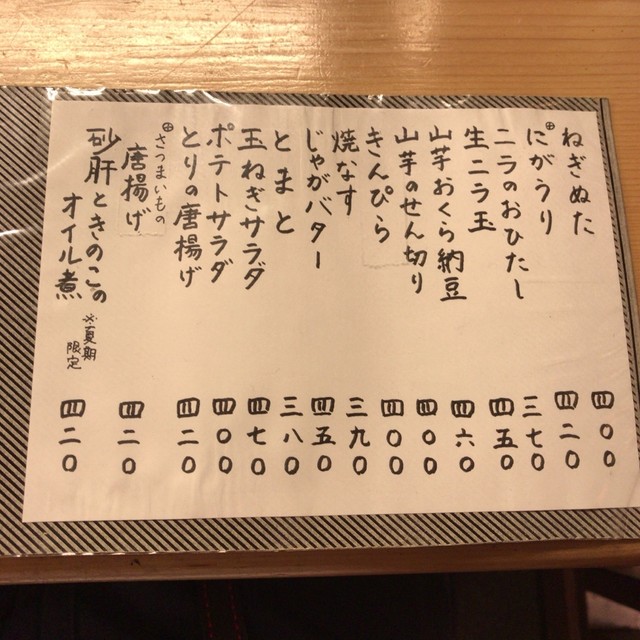 ねぎぬた 四〇〇
にがうり 四二〇
ニラのおひたし 三七〇
生ニラ玉 四五〇
山芋おくら納豆 四六〇
山芋のせん切り 四〇〇
きんぴら 四〇〇
焼なす 三九〇
じゃがバター 四五〇
とまと 三八〇
玉ねぎサラダ 四七〇
ポテトサラダ 四〇〇
とりの唐揚げ 四二〇
さつまいもの
唐揚げ 四二〇
砂肝ときのこの
オイル煮 四二〇
※夏期
限定